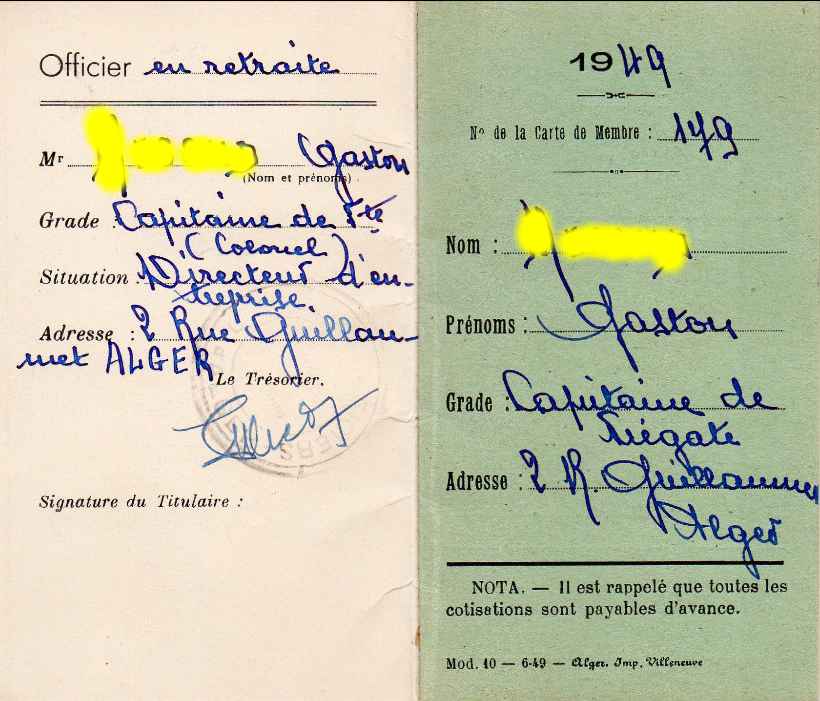 Officier en retraite
Mr Gaston
(Nom et prénoms)
Grade : Capitaine de fte
(Colonel)
Situation : Directeur d'en-
treprise
Adresse : 2 Rue Guillau-
met ALGER
Le Trésorier.
Signature du Titulaire :
1949
No de la Carte de Membre : 179
Nom :
Prénoms : Gaston
Grade : Capitaine de
frégate
Adresse : 2 R. Guillaumet
Alger
NOTA. — Il est rappelé que toutes les
cotisations sont payables d'avance.
Mod. 10 — 6-49 — Alger. Imp. Villeneuve